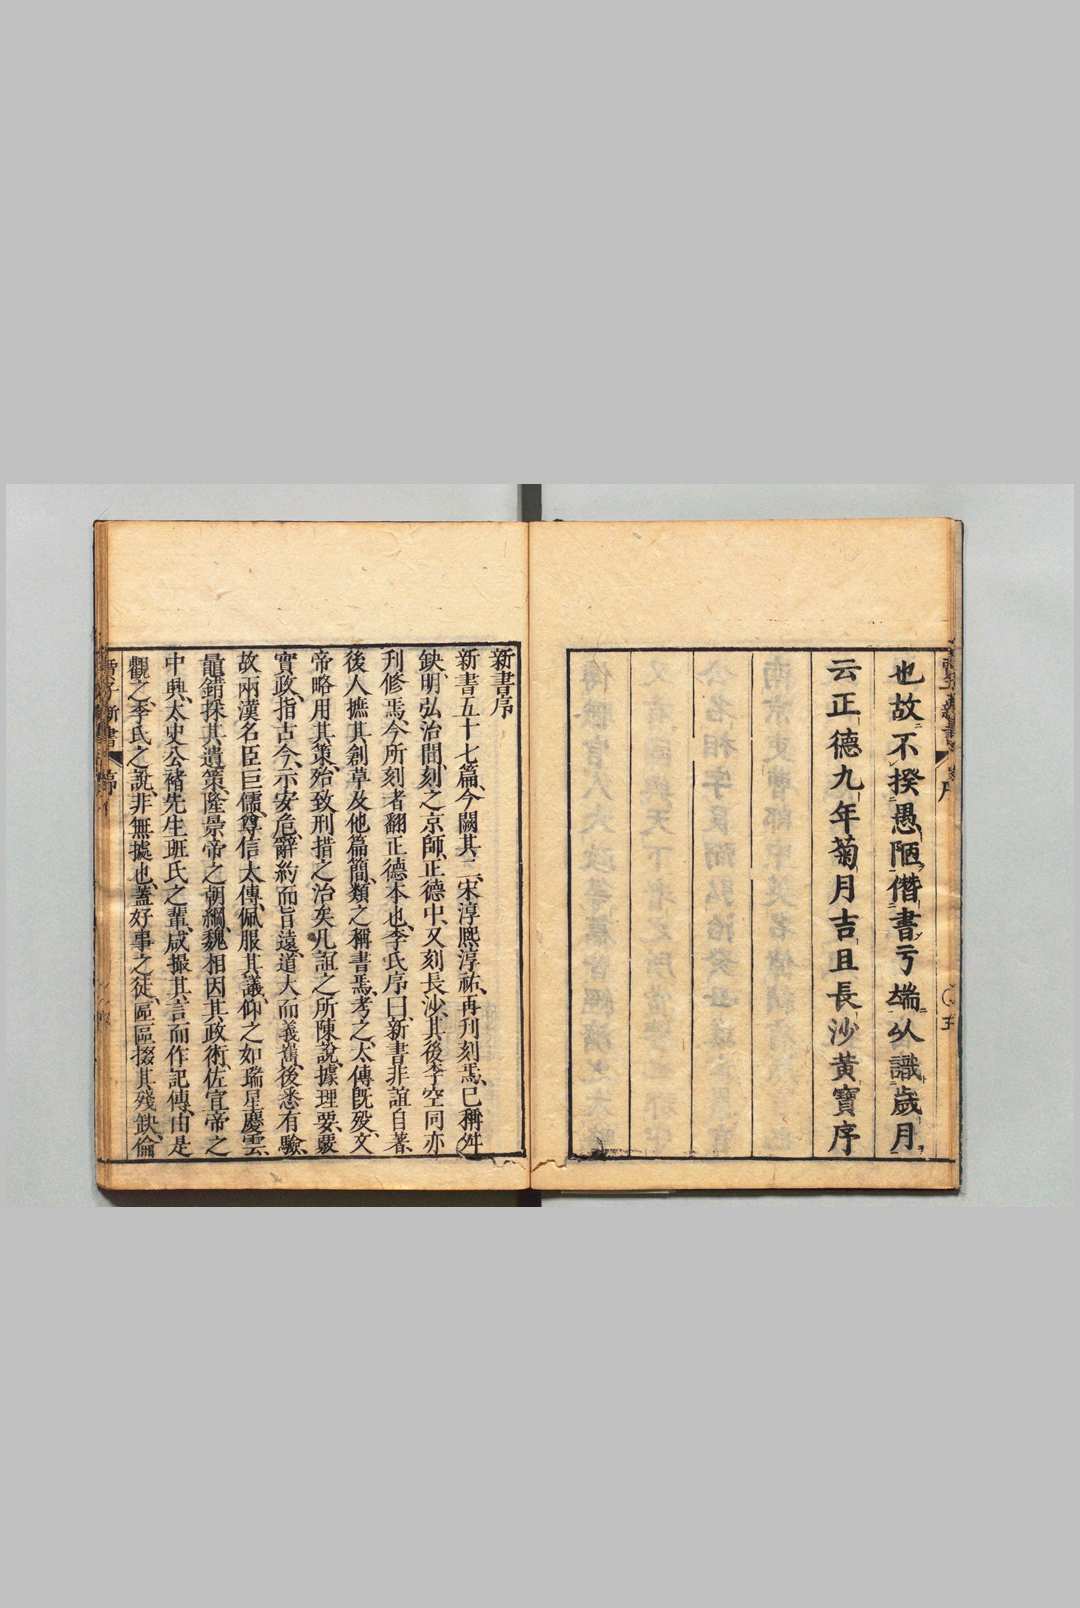 也故不揆愚陋僭書亏端㕥識歲月
云正德九年菊月吉且長沙黃寶序
新書序
新書五十七篇、今闕其二、宋淳熙淳祐、再刊刻焉、已稱舛
缺、明弘治間、刻之京師、正德中、又刻長沙、其後李空同亦
刊修焉、今所刻者翻正德本也、李氏序曰、新書非誼自著、
後人摭其創草及他篇簡、類之稱書焉、考之、太傳旣歿、文
帝略用其策、殆致刑措之治矣、凡誼之所陳說、據理要、嚴
實政、指古今、示安危、辭約而旨遠、道大而義舊、後悉有驗、
故兩漢名臣巨儒、尊信太傳、佩服其議、仰之如瑞星慶雲、
鼂錯採其遺策、隆景帝之朝綱、魏相因其政術、佐宣帝之
中興、太史公褚先生班氏之輩、咸撮其言、而作記傳、由是
觀之、李氏之說、非無據也、蓋好事之徒、區區掇其殘缺、倫
賈子新書 序